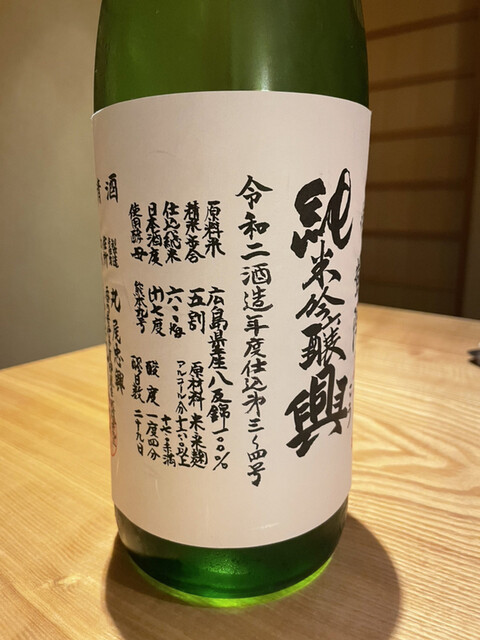 純米吟醸 興
令和二酒造年度仕込第三〜四号
原料米 広島県産八反錦一〇〇%
精米歩合 五割 原材料 米 米麹
仕込総米 六〇〇kg アルコール分 十六・〇以上
十七・〇未満
日本酒度 (+)七度 酸度 一度四分
使用酵母 熊本九号 醪日数 二十九日
清酒
丸尾忠興